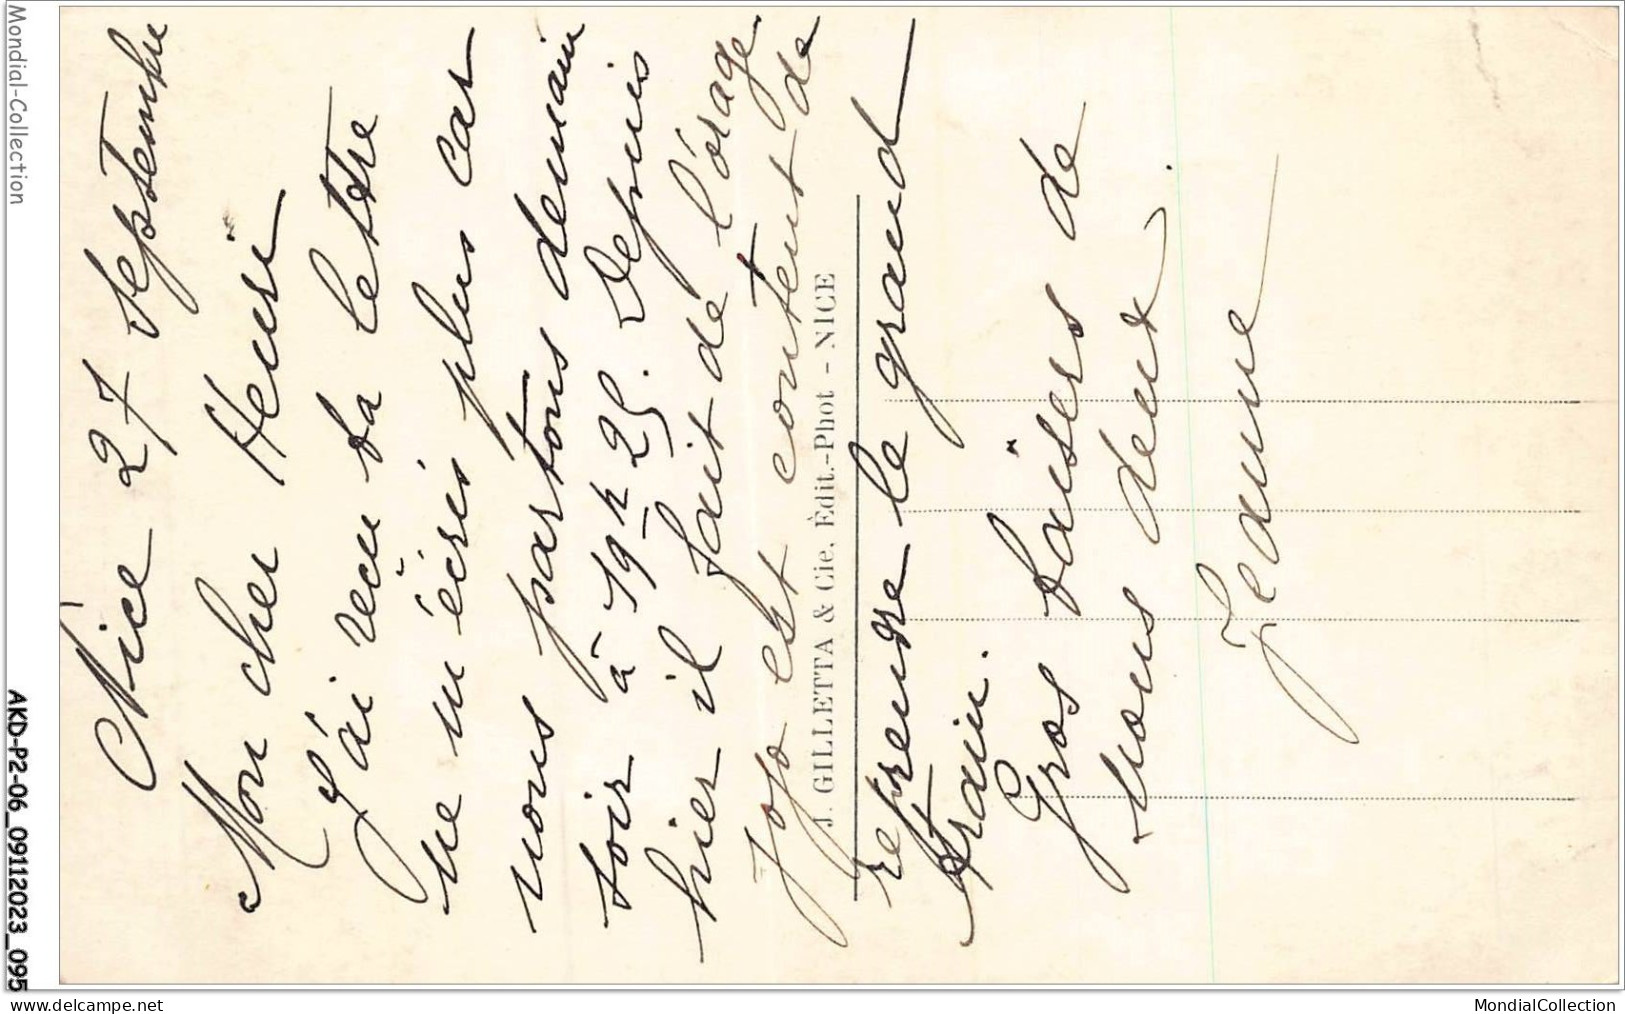 Nice 27 Septembre
Mon cher Henri
J'ai reçu ta lettre
ne m'écris plus car
nous partons demain
soir à 19h 25. Depuis
hier il fait de l'orage
Jojo est content de
reprendre le grand
train.
Gros baisers de
nous deux.
Jeanne
J. GILLETTA & Cie, Èdit.-Phot - NICE
Mondial-Collection
AKD-P2-06_09112023_095
www.delcampe.net
MondialCollection